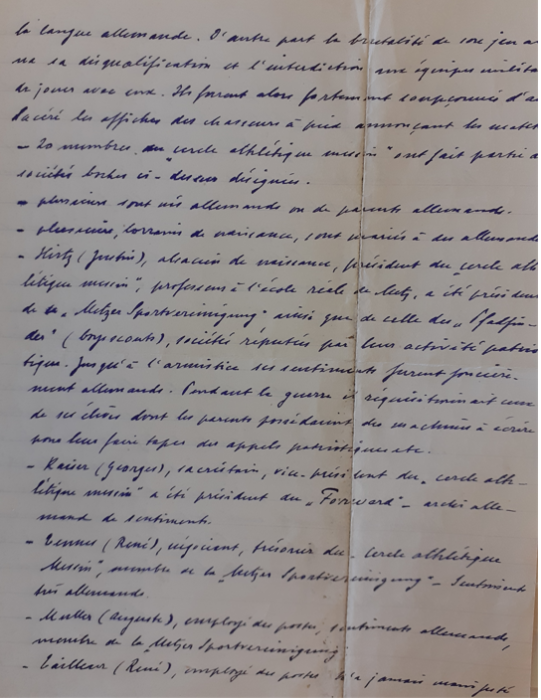 la langue allemande. D'autre part la brutalité de son jeu a
na sa disqualification et l'interdiction aux équipes milita
de jouer avec eux. Ils furent alors fortement soupçonnés d'a
lacéré les affiches des chasseurs à pied annonçant les
- 20 membres du "cercle athlétique messin" ont fait partie d
sociétés boches ci-dessus désignées.
- plusieurs sont nés allemands ou de parents allemands.
- plusieurs, lorrains de naissance, sont mariés à des allemand
- Hirtz (Justin), alsacien de naissance, président du "cercle ath
létique messin", professeur à l'école réale de Metz, a été présiden
de la "Metzer Sportvereinigung" ainsi que de celle des "Pfadfin-
der" (boyscouts), sociétés réputées par leur activité patrio
tique. Jusqu'à l'armistice ses sentiments furent foncière-
ment allemands. Pendant la guerre il réquisitionnait ceux
de ses élèves dont les parents possédaient des machines à écrire
pour leur faire taper des appels patriotiques etc.
- Kaiser (Georges), secrétaire, vice-président du "cercle ath-
létique messin" a été président du "Forward" - alle-
mand de sentiments.
- (René), négociant, trésorier du "cercle athlétique
Messin", membre de la "Metzer Sportvereinigung" - Sentiments
très allemands.
- Muller (Auguste), employé des postes, sentiments allemands,
membre de la "Metzer Sportvereinigung"
- (René), employé des postes n'a jamais manifesté